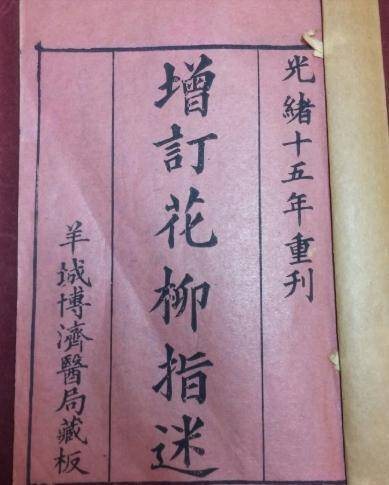 光緒十五年重刊
增訂花柳指迷
羊城博濟醫局藏板